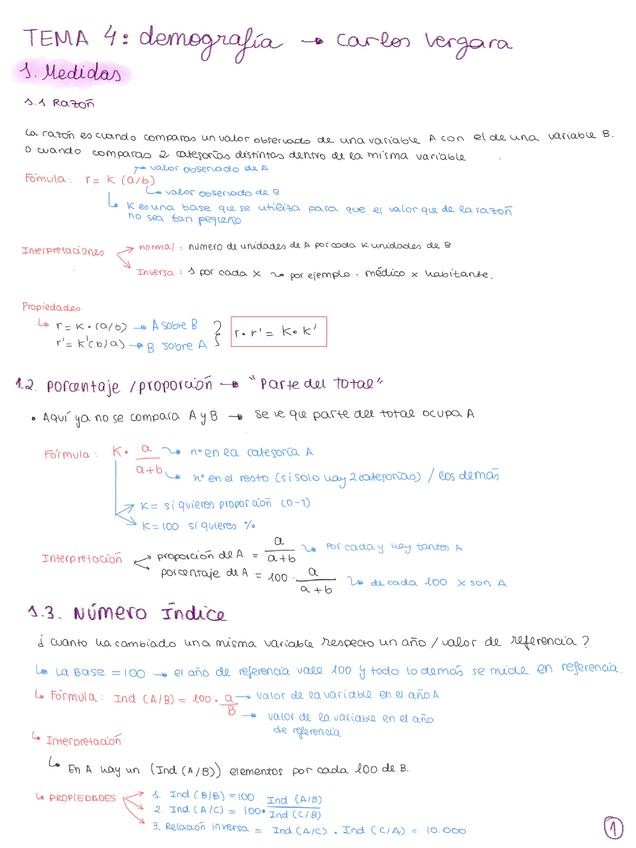 TEMA 4: demografía → carlos vergara
1. Medidas
1.1 Razón
La razón es cuando comparas un valor observado de una variable A con el de una variable B.
O cuando comparas 2 categorías distintas dentro de la misma variable
→ valor observado de A
Fórmula: r = K (a/b)
↳ valor observado de B
↳ K es una base que se utiliza para que el valor que de la razón
no sea tan pequeño
Interpretaciones → normal: número de unidades de A por cada K unidades de B
→ Inversa: 1 por cada X ↝ por ejemplo: médico x habitante.
Propiedades
↳ r = K · (a/b) → A sobre B
r' = K'(b/a) → B sobre A } r · r' = K · K'
1.2. Porcentaje / proporción → "Parte del total"
• Aquí ya no se compara A y B → se ve que parte del total ocupa A
Fórmula: K · a/(a+b) ↝ nº en la categoría A
↝ nº en el resto (si solo hay 2 categorías) / los demás
→ K = si quieres proporción (0-1)
→ K = 100 si quieres %
Interpretación → proporción de A = a/(a+b) ↝ Por cada y hay tantos A
→ porcentaje de A = 100 · a/(a+b) ↝ de cada 100 X son A
1.3. Número Índice
¿ cuanto ha cambiado una misma variable respecto un año / valor de referencia ?
↳ La Base = 100 → el año de referencia vale 100 y todo lo demás se mide en referencia.
↳ Fórmula: Ind (A/B) = 100 · a/B → valor de la variable en el año A
→ valor de la variable en el año
de referencia
↳ Interpretación
↳ En A hay un (Ind (A/B)) elementos por cada 100 de B.
↳ PROPIEDADES → 1. Ind (B/B) = 100
→ 2. Ind (A/C) = 100 · Ind (A/B)/Ind (C/B)
→ 3. Relación inversa = Ind (A/C) . Ind (C/A) = 10.000
1